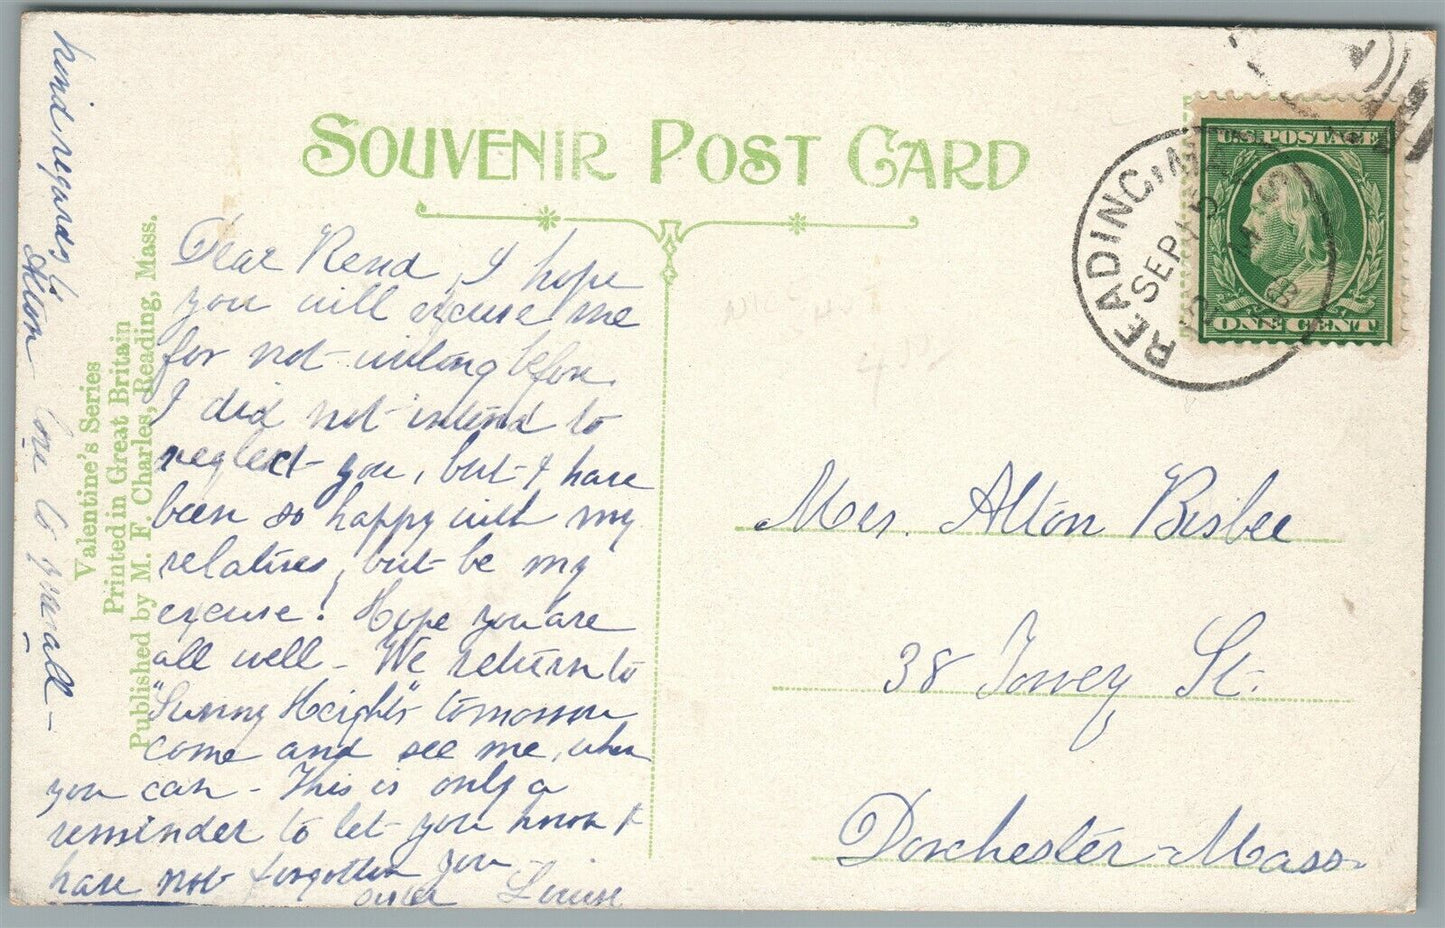 SOUVENIR POST CARD
U.S. POSTAGE
ONE CENT
READING, MASS
SEP 15
Valentine's Series
Printed in Great Britain
Published by M. F. Charles, Reading, Mass.
Dear Rena, I hope
you will excuse me
for not writing before.
I did not intend to
neglect you, but I have
been so happy with my
relatives, but be my
excuse! Hope you are
all well - We return to
"Sunny Heights" tomorrow
come and see me, when
you can - This is only a
reminder to let you know I
have not forgotten you -
Louise
kind regards to
Alton
love to you all -
Mrs. Alton Bisbee
38 Tovey St.
Dorchester - Mass.